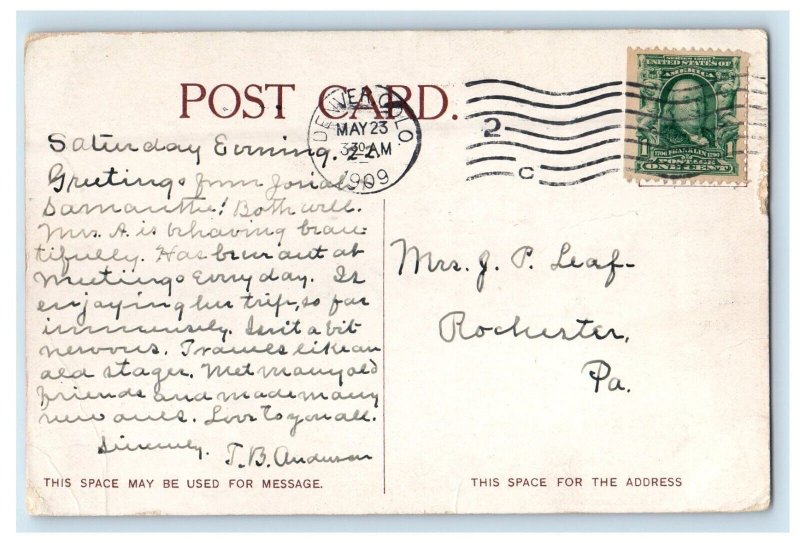 POST CARD.
DENVER, COLO.
MAY 23
3 30 AM
1909
2
C
SERIES 1902
UNITED STATES OF
AMERICA
1706 FRANKLIN 1790
POSTAGE
1 ONE CENT 1
Saturday Evening. 22.
Greetings from Josiah &
Samantha! Both well.
Mrs. A. is behaving beau-
tifully. Has been out at
meetings every day. Is
enjoying her trip, so far
immensely. Isn't a bit
nervous. Travels like an
old stager. Met many old
friends and made many
new ones. Love to you all.
Sincerely,
T. B. Anderson
Mrs. J. P. Leaf-
Rochester,
Pa.
THIS SPACE MAY BE USED FOR MESSAGE.
THIS SPACE FOR THE ADDRESS